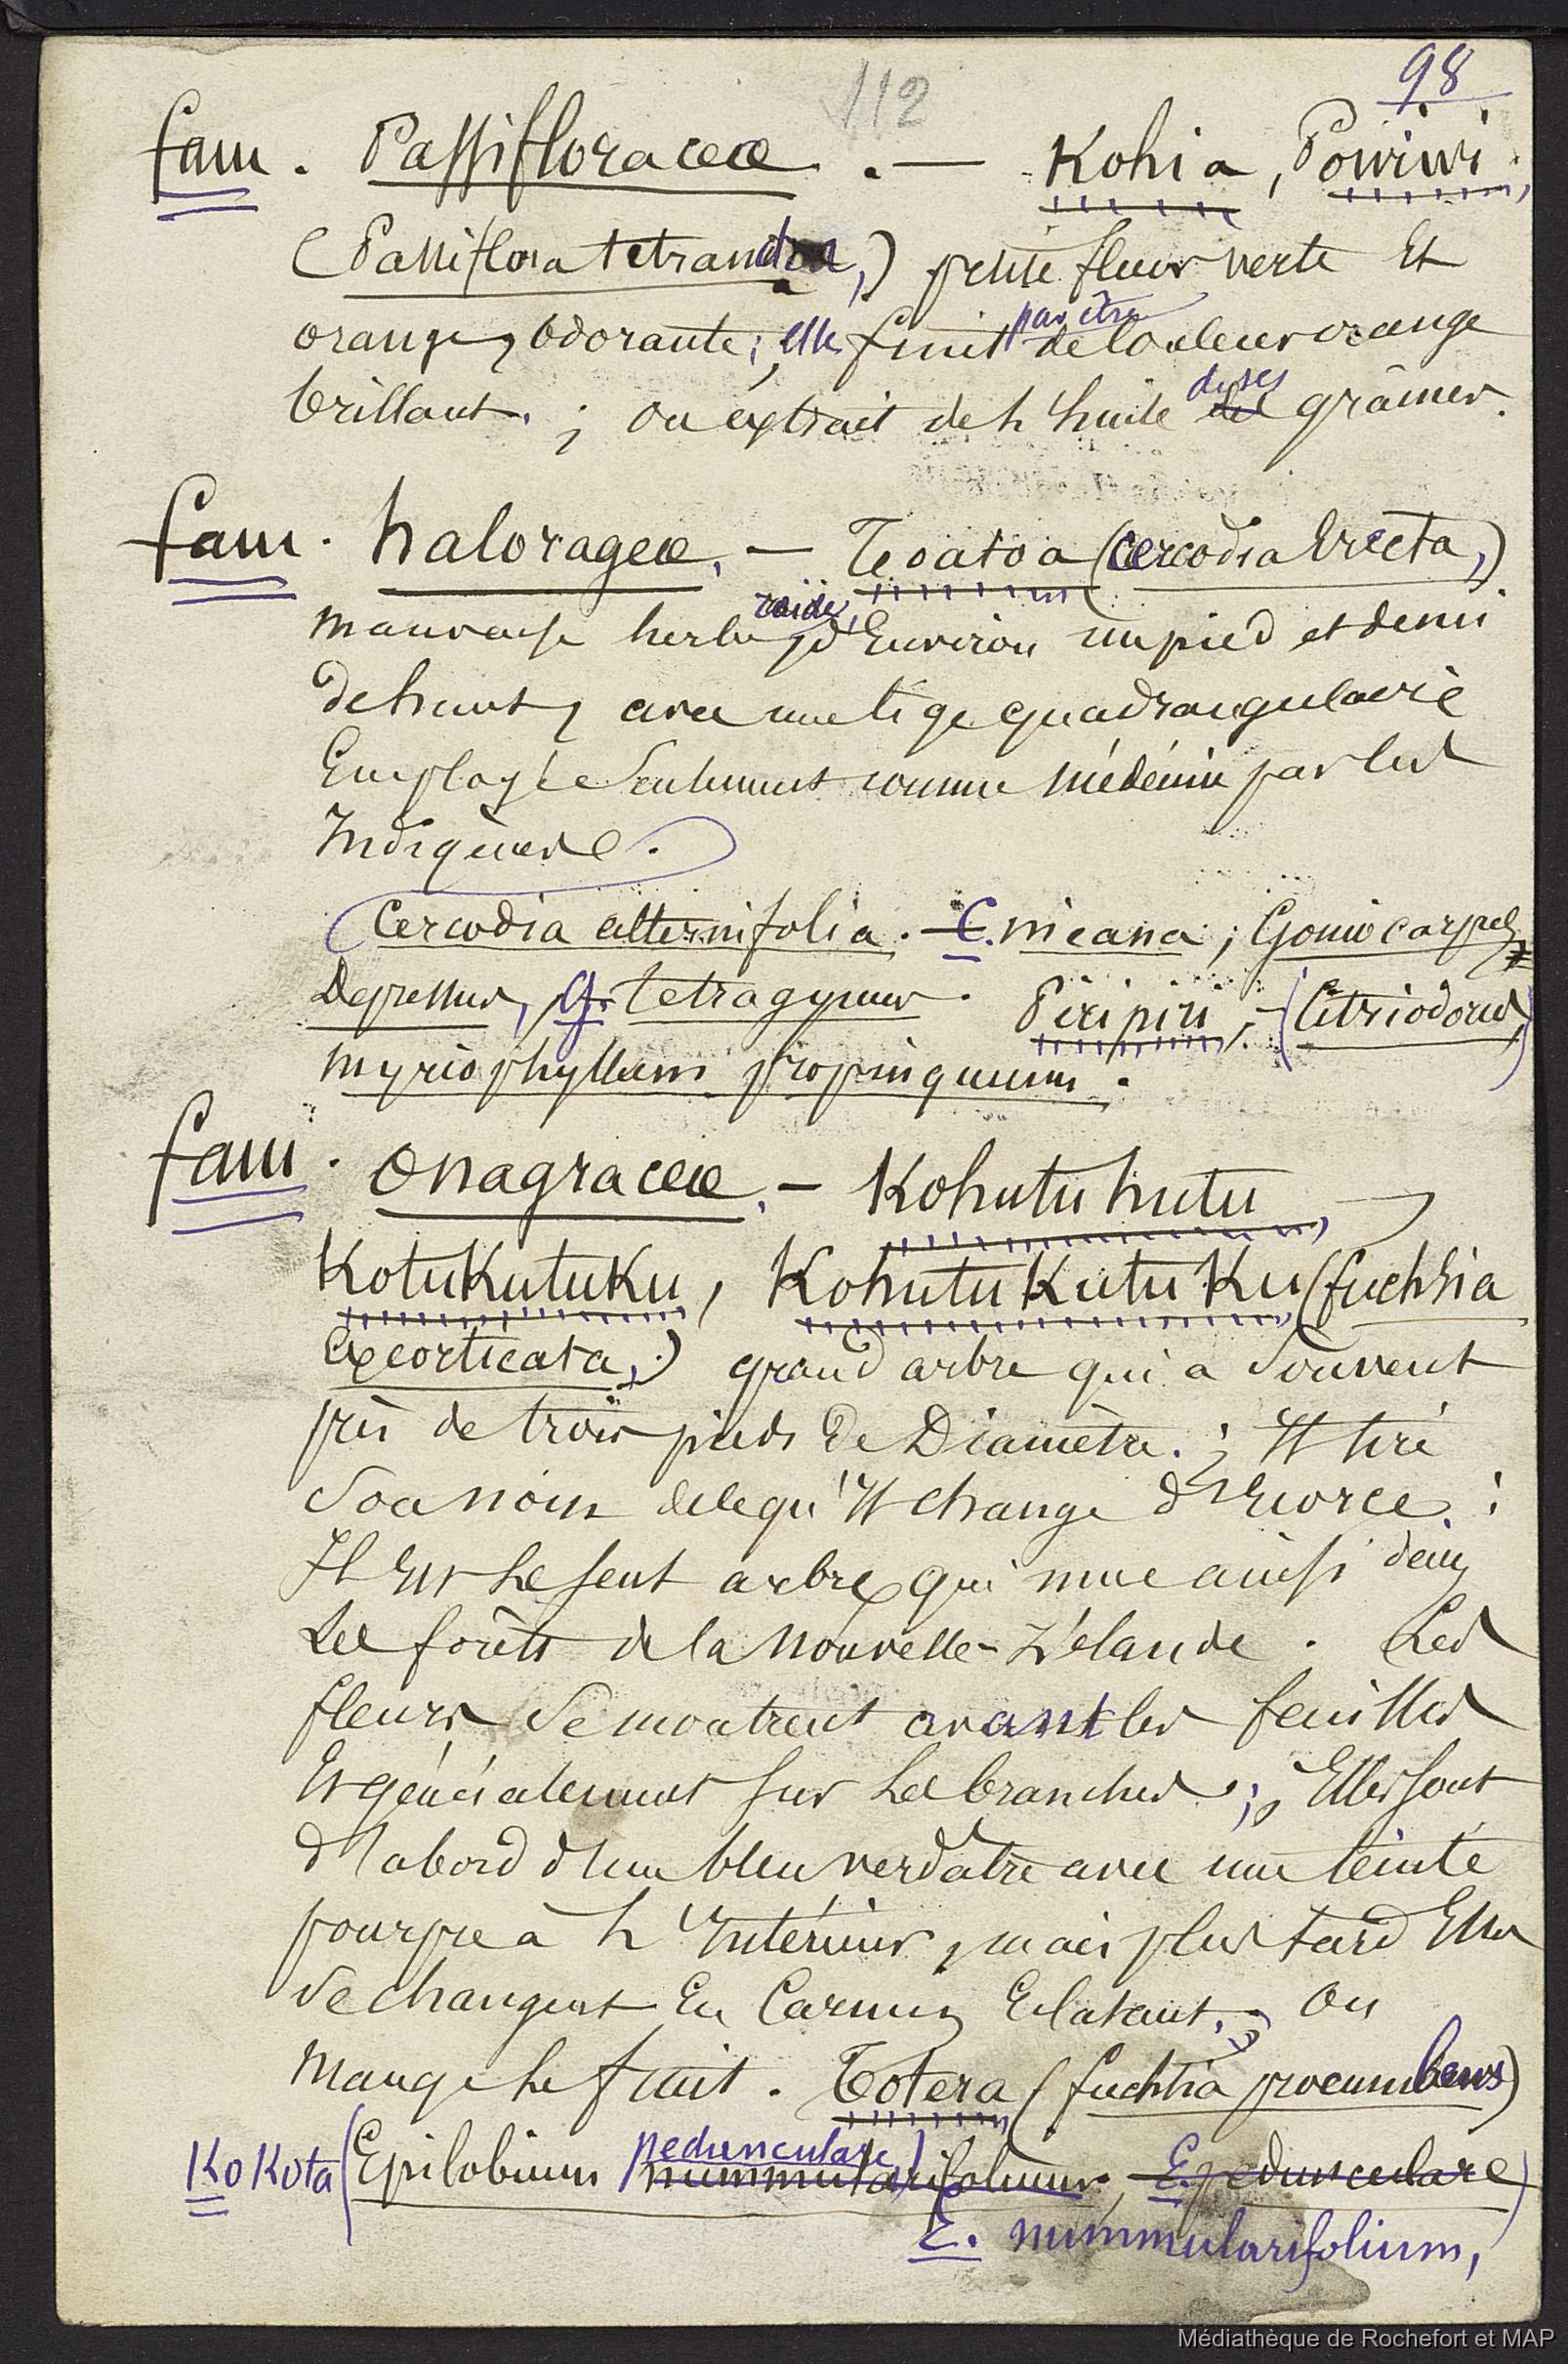 98
112
fam. Passifloraceæ. — Kohia, Powiwi,
(Passiflora tetrandra,) petite fleur verte et
orange, odorante; elle finit par être de couleur orange
brillant; on extrait de l'huile de ses graines.
fam. halorageæ, — Toatoa (cercodia Erecta,)
mauvaise herbe raide, d'Environ un pied et demi
de haut, avec une tige quadrangulaire
Employée seulement comme médecine par les
Indigènes.
Cercodia alternifolia. C. micana; Goniocarpus
Depressus, G. tetragynus. Piripiri, (Citriodorus,)
myriophyllum propinquum.
fam. onagraceæ, — Kohutuhutu,
Kotukutuku, Kohutukutuku (fuchsia
excorticata,) grand arbre qui a souvent
près de trois pieds de Diamètre; Il tire
son nom de ce qu'Il change d'Ecorce:
Il Est le seul arbre qui mue ainsi dans
Les forêts de la Nouvelle-Zélande. Les
fleurs se montrent avant les feuilles
Et généralement sur les branches; Elles sont
d'abord d'un bleu verdâtre avec une teinte
pourpre à l'Intérieur, mais plus tard Elles
se changent En Carmin Eclatant, On
mange le fruit. Totera (fuchsia procumbens)
Kokota (Epilobium pedunculare) nummularifolium, E. pedunculare)
E. nummularifolium,
Médiathèque de Rochefort et MAP